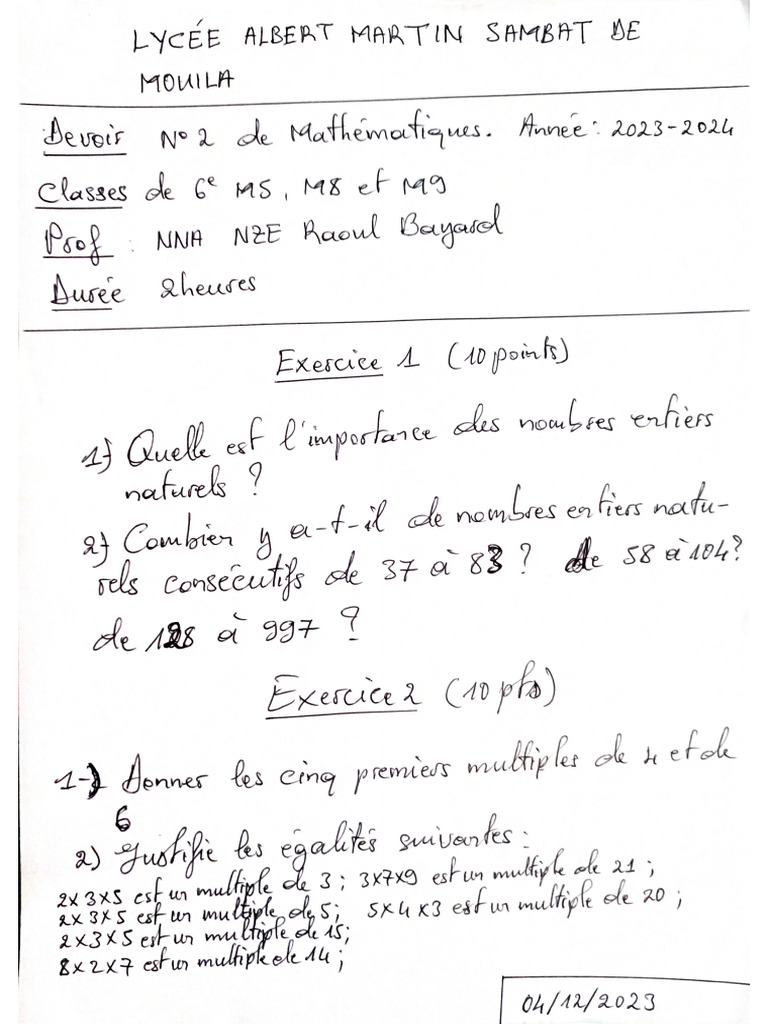 LYCÉE ALBERT MARTIN SAMBAT DE
MOUILA
Devoir N° 2 de Mathématiques. Année : 2023-2024
Classes de 6e M5, M8 et M9
Prof : NNA NZE Raoul Bayard
Durée 2heures
Exercice 1 (10 points)
1) Quelle est l'importance des nombres entiers
naturels ?
2) Combien y a-t-il de nombres entiers natu-
rels consécutifs de 37 à 83 ? de 58 à 104 ?
de 128 à 997 ?
Exercice 2 (10 pts)
1-) Donner les cinq premiers multiples de 4 et de
6
2) Justifie les égalités suivantes :
2 x 3 x 5 est un multiple de 3 ; 3x7x9 est un multiple de 21 ;
2 x 3 x 5 est un multiple de 5 ; 5 x 4 x 3 est un multiple de 20 ;
2 x 3 x 5 est un multiple de 15 ;
8 x 2 x 7 est un multiple de 14 ;
04/12/2023